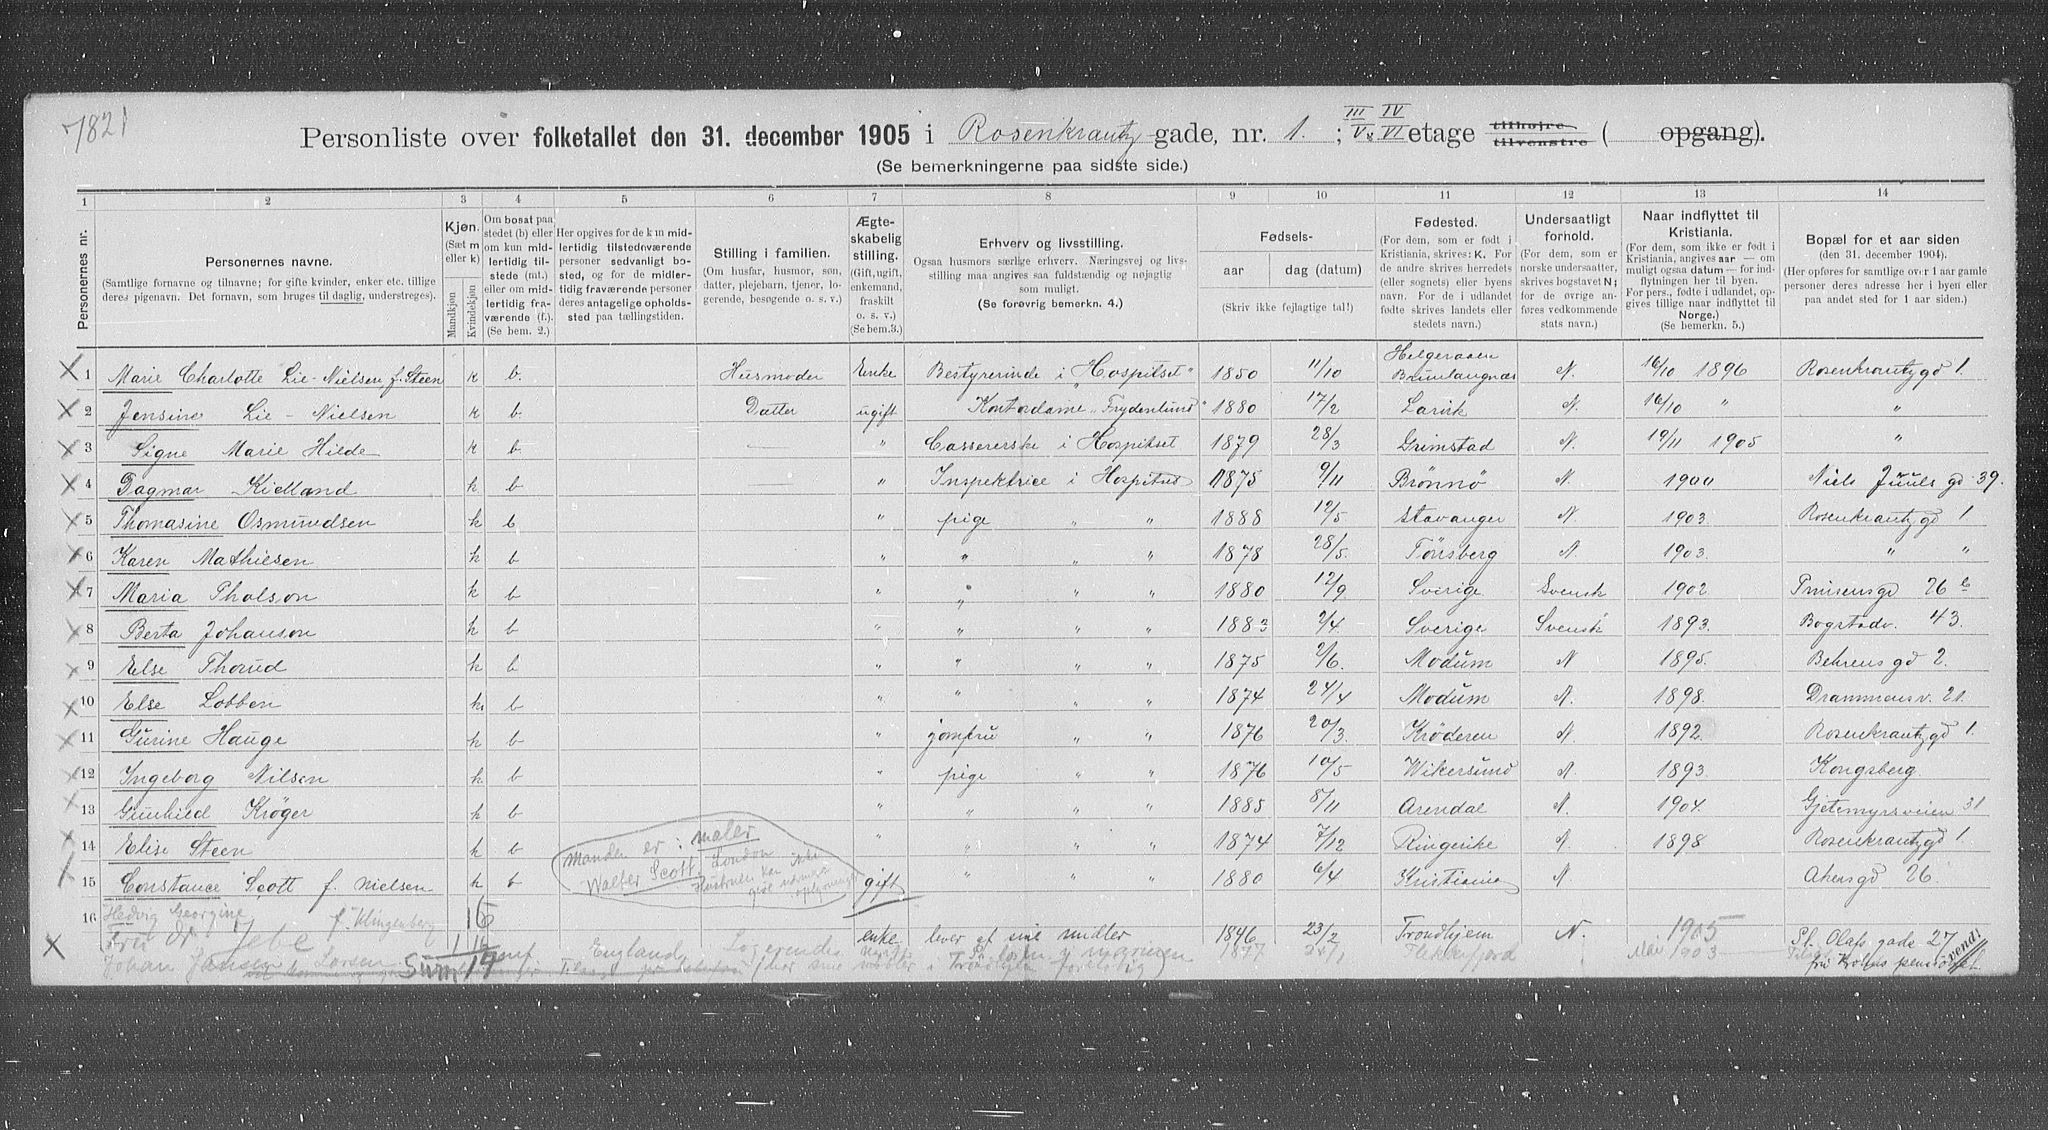 7821
Personliste over folketallet den 31. december 1905 i Rosenkrantz gade, nr. 1. ; III IV V & VI etage tilhøjre tilvenstre ( opgang).
(Se bemerkningerne paa sidste side.)
1 2 3 4 5 6 7 8 9 10 11 12 13 14
Personernes nr.
Personernes navne.
(Samtlige fornavne og tilnavne; for gifte kvinder, enker etc. tillige deres pigenavn. Det fornavn, som bruges til daglig, understreges).
Kjøn.
(Sæt m eller k)
Mandkjøn
Kvindekjøn
Om bosat paa stedet (b) eller om kun midlertidig tilstede (mt.) eller om midlertidig fraværende (f.). (Se bem. 2.)
Her opgives for de kun midlertidig tilstednværende personer sedvanligt bosted, og for de midlertidig fraværende personer deres antagelige opholdssted paa tællingstiden.
Stilling i familien.
(Om husfar, husmor, søn, datter, plejebarn, tjener, logerende, besøgende o. s. v.)
Ægteskabelig stilling.
(Gift, ugift, enkemand, fraskilt o. s. v.)
(Se bem. 3.)
Erhverv og livsstilling.
Ogsaa husmors særlige erhverv. Næringsvej og livsstilling maa angives saa fuldstændig og nøjagtig som muligt.
(Se forøvrig bemerkn. 4.)
Fødsels-
aar dag (datum)
(Skriv ikke fejlagtige tal!)
Fødested.
(For dem, som er født i Kristiania, skrives: K. For de andre skrives herredets (eller sognets) eller byens navn. For de i udlandet fødte skrives landets eller stedets navn.)
Undersaatligt forhold.
(For dem, som er norske undersaatter, skrives bogstavet N; for de øvrige anføres vedkommende stats navn).
Naar indflyttet til Kristiania.
(For dem, som ikke er født i Kristiania, angives aar — om muligt ogsaa datum — for indflytningen her til byen. For pers., fødte i udlandet, opgives tillige naar indflyttet til Norge.)
(Se bemerkn. 5.)
Bopæl for et aar siden
(den 31. december 1904).
(Her opføres for samtlige over 1 aar gamle personer deres adresse her i byen eller paa andet sted for 1 aar siden.)
1 Marie Charlotte Lie-Nielsen f. Steen k b. Husmoder Enke Bestyrerinde i "Hospitset" 1850 11/10 Helgeraaen Brunlangnæs N. 16/10 1896 Rosenkrantz gd 1.
2 Jensine Lie-Nielsen k b. Datter ugift Kontordame "Frydenlund" 1880 17/2 Larvik N. 16/10 " "
3 Signe Marie Hilde k b. — " Cassererske i Hospitset 1879 28/3 Grimstad N. 19/11 1905 "
4 Dagmar Kielland k b — " Inspektrice i Hospitset 1875 9/11 Brönnö N. 1900 Niels Juuls gd 39.
5 Thomasine Osmundsen k b " pige " " 1888 12/5 Stavanger N. 1903. Rosenkrantz gd 1
6 Karen Mathiesen k b " " " 1878 28/5. Tönsberg N 1903. " "
7 Maria Pholson k b " " " " 1880 12/9 Sverige Svensk 1902 26 b
8 Berta Johanson k b " " " " 1883 2/4. Sverige Svensk 1893. Bogstadv. 43.
9 Else Thorud k b " " " " 1875 2/6. Modum N 1895. Behrens gd 2.
10 Else Lobben k b " " " " 1874 24/4 Modum N. 1898. Drammensv. 21.
11 Gurine Hauge k b " jomfru " " 1876 20/3. Kröderen N. 1892. Rosenkrantz gd 1.
12 Ingeborg Nilsen k b " pige " " 1876 10/5 Wikersund N. 1893. Kongsberg.
13 Gunhild Kröger k b " " " 1885 8/11 Arendal N. 1904. Gjetemyrsveien 31
14 Elise Steen k b " " " 1874 7/12 Ringerike N. 1898 Rosenkrantz gd 1.
Manden er i maler
Walter Scott, London
Hustruen kan ikke
give oplysninger
15 Constance Scott f. Nielsen k b gift " " 1880 6/4 Kristiania N. Akersgd 26.
16 Hedvig Georgine f. Klingenberg 16
Fru Jebe enke lever af sine midler 1846 23/2 Trondhjem N. 1905 St. Olafs gade 27
Johan Jansen Larsen England Logerende 1877 Flekkefjord Mai 1903
Sum 17
vend!